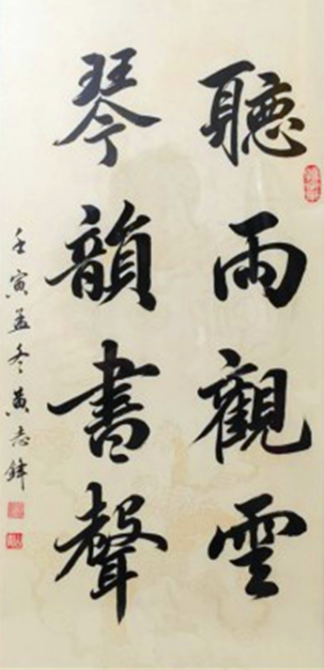 聽雨觀雲
琴韻書聲
壬寅孟冬黄志鋒